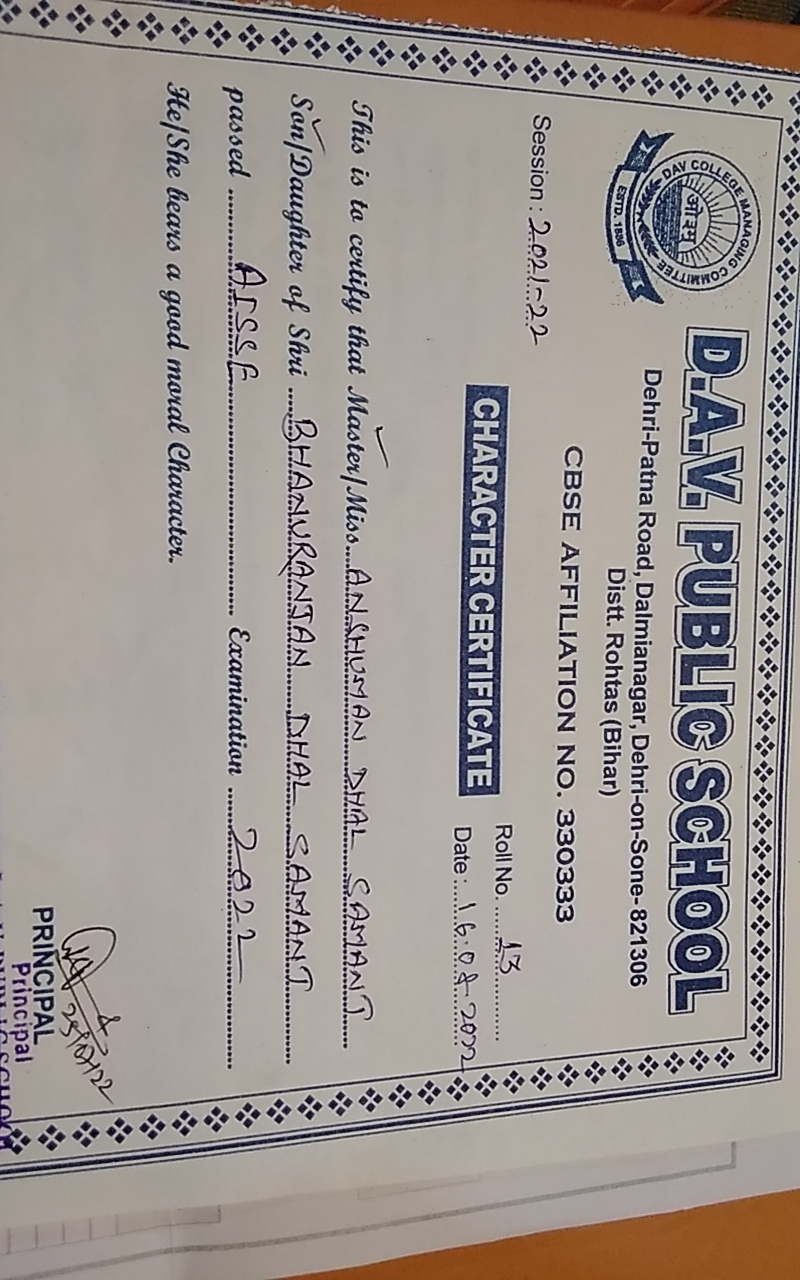 DAV COLLEGE MANAGING COMMITTEE
ओ३म्
ESTD. 1886
D.A.V. PUBLIC SCHOOL
Dehri-Patna Road, Dalmianagar, Dehri-on-Sone- 821306
Distt. Rohtas (Bihar)
CBSE AFFILIATION NO. 330333
Session : 2021-22
Roll No. 13
CHARACTER CERTIFICATE
Date : 16.08.2022
This is to certify that Master/Miss ANSHUMAN DHAL SAMANT
Son/Daughter of Shri BHANURANJAN DHAL SAMANT
passed AISSE Examination 2022
He/She bears a good moral Character.
PRINCIPAL
Principal
PUBLIC SCHOOL